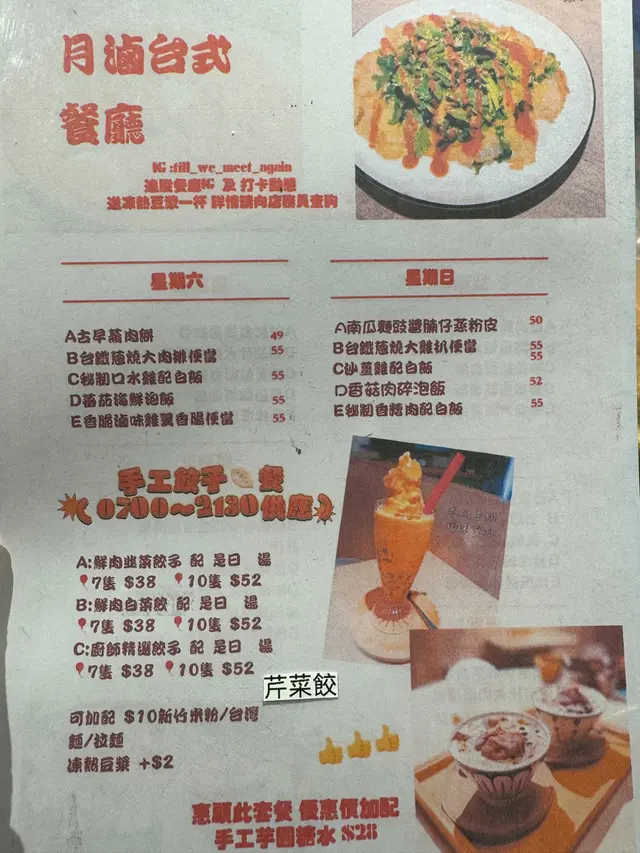 月滷台式
餐廳
IG :till_we_meet_again
追蹤餐廳IG 及 打卡動態
送凍熱豆漿一杯 詳情請向店務員查詢
星期六
A古早蒸肉餅 49
B台鐵蔥燒大肉排便當 55
C秘制口水雞配白飯 55
D蕃茄海鮮泡飯 55
E香脆滷味雞翼香腸便當 55
星期日
A南瓜麵豉醬腩仔蒸粉皮 50
B台鐵蔥燒大雞扒便當 55
C沙薑雞配白飯 55
D香菇肉碎泡飯 52
E秘制香醬肉配白飯 55
手工餃子 餐
( 0700～2130供應 )
A:鮮肉韭菜餃子 配 是日 湯
7隻 $38 10隻 $52
B:鮮肉白菜餃 配 是日 湯
7隻 $38 10隻 $52
C:廚師精選餃子 配 是日 湯
7隻 $38 10隻 $52
芹菜餃
可加配 $10新竹米粉/台灣
麵/拉麵
凍熱豆漿 +$2
惠顧此套餐 優惠價加配
手工芋圓糖水 $28